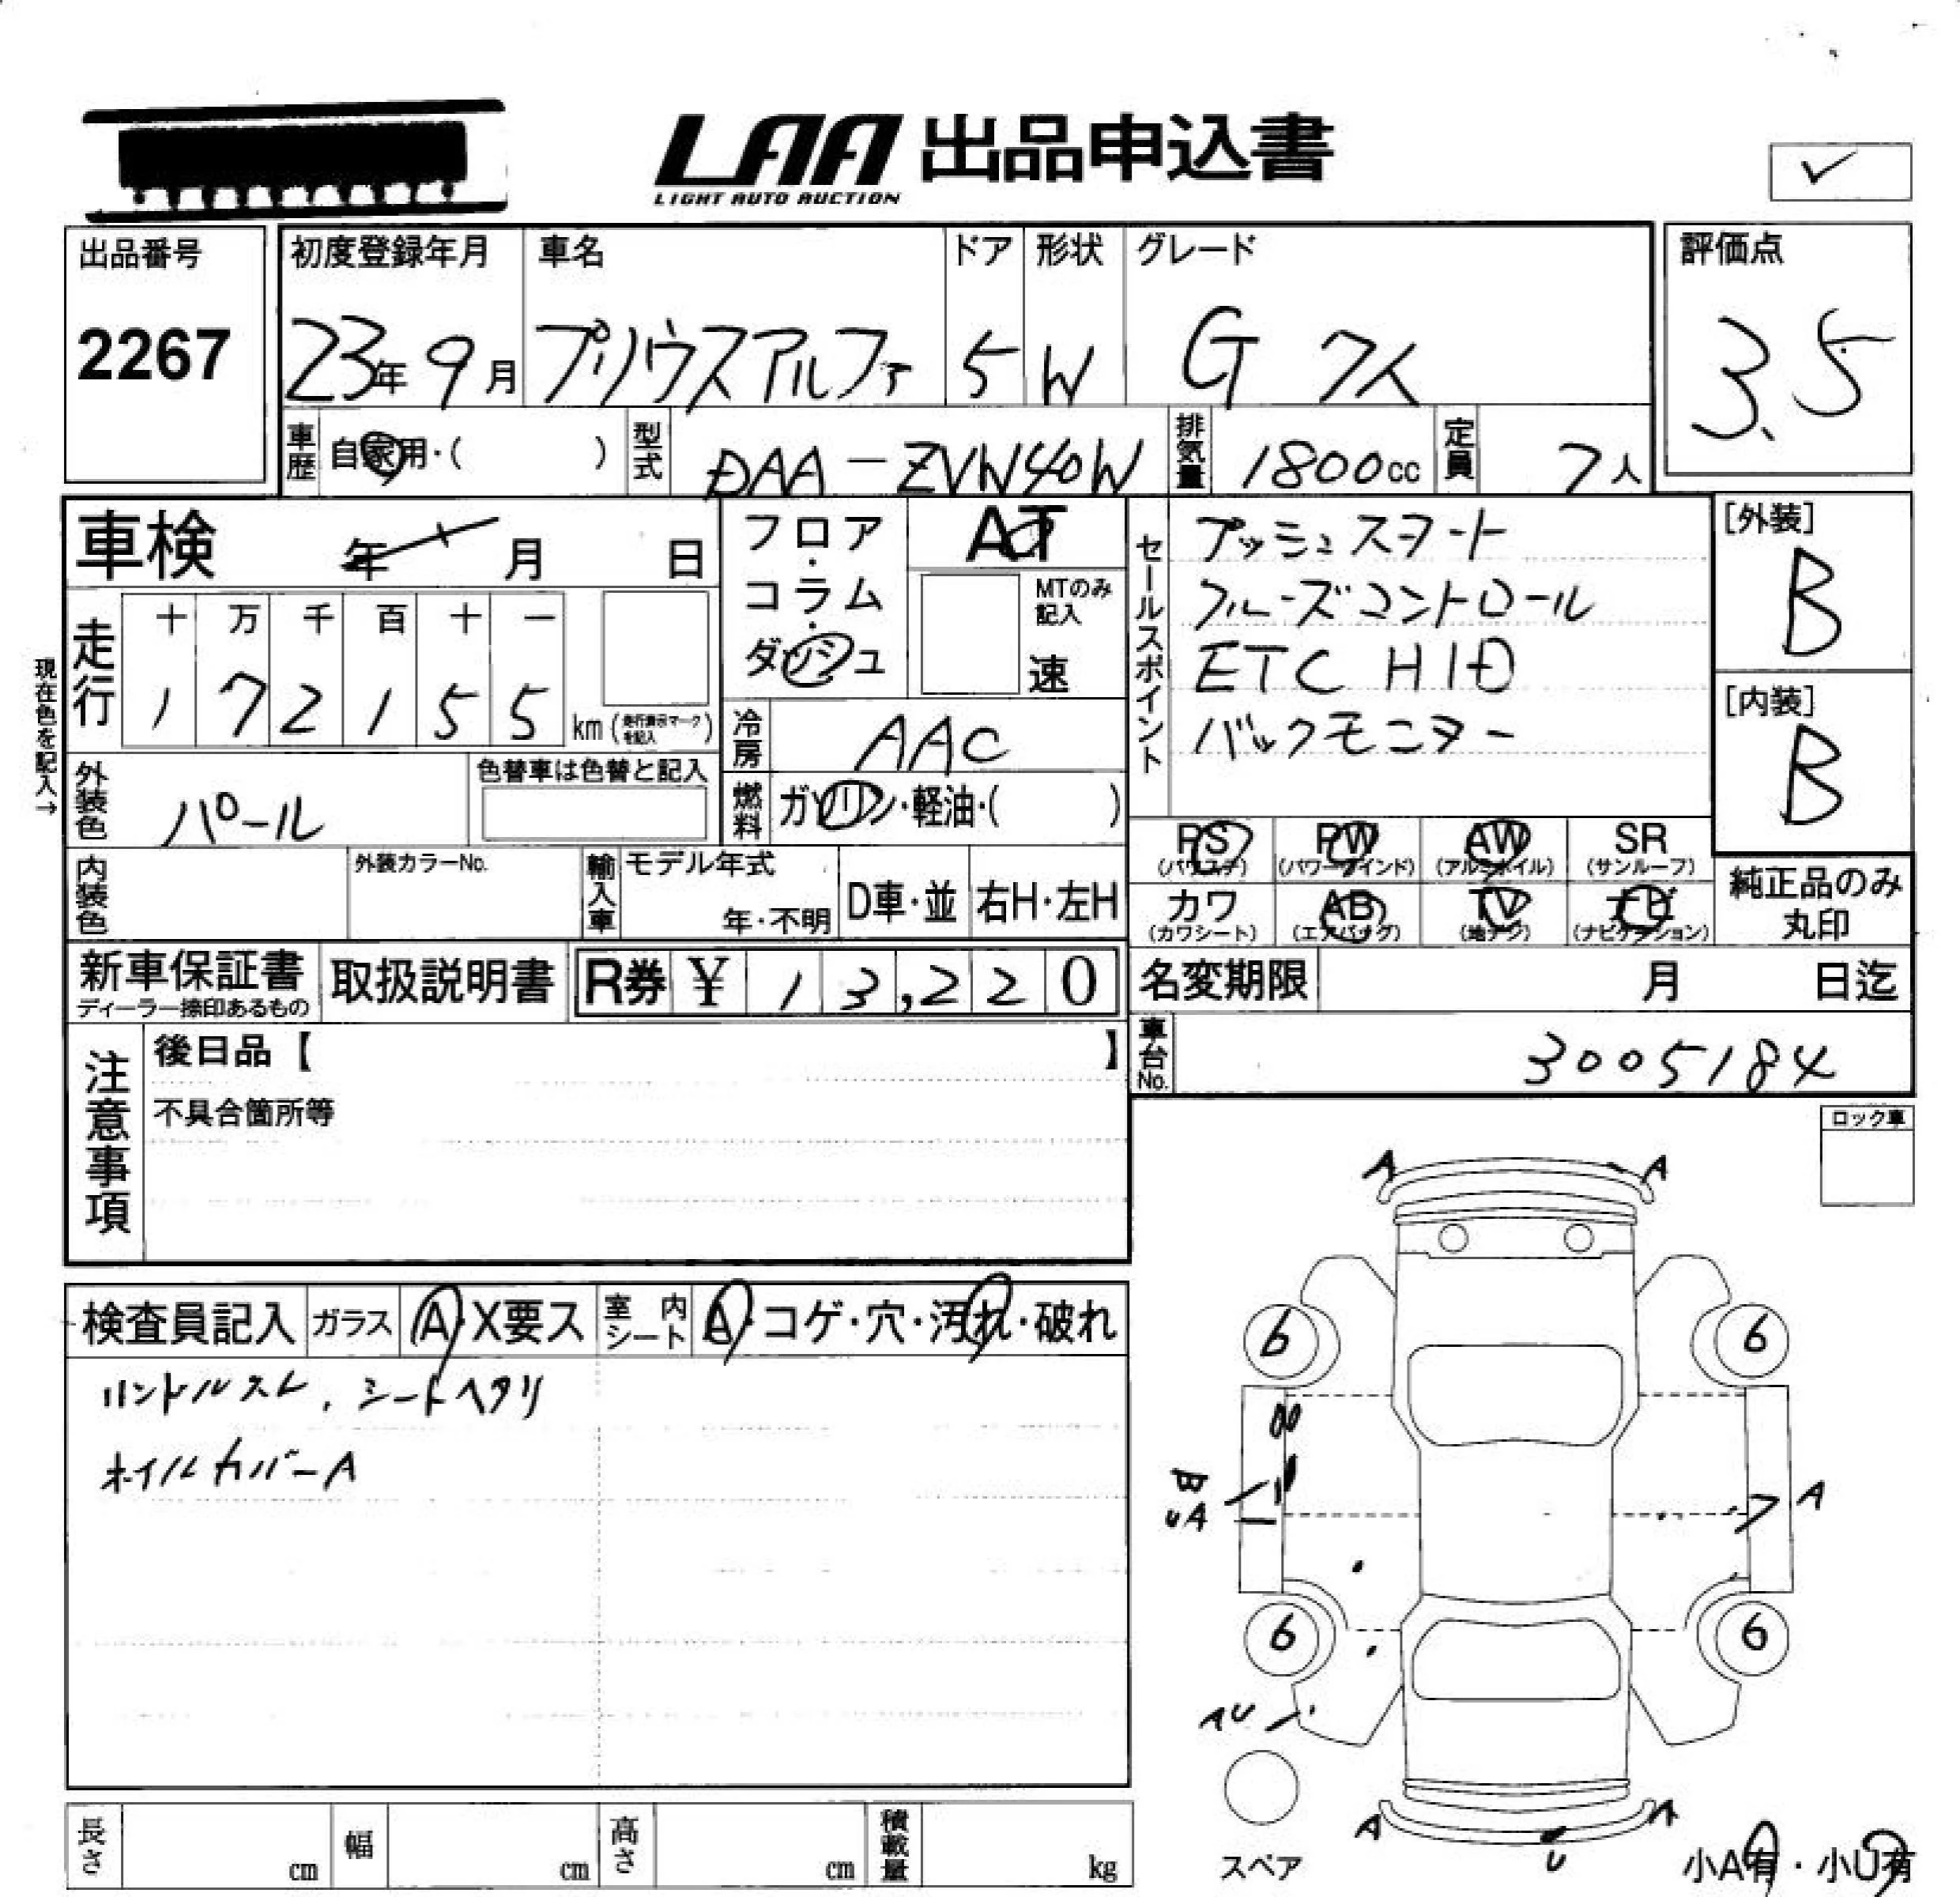 LAA 出品申込書
LIGHT AUTO AUCTION
✓
出品番号
2267
初度登録年月
23年 9月
車名
プリウスアルファ
ドア
5
形状
W
グレード
G 7人
評価点
3.5
車歴
自家用・( )
型式
DAA-ZVW40W
排気量
1800cc
定員
7人
車検 年 月 日
フロア・コラム・ダッシュ
AT
MTのみ記入
速
セールスポイント
プッシュスタート
クルーズコントロール
ETC HID
バックモニター
[外装]
B
[内装]
B
現在色を記入→
走行
十 万 千 百 十 一
1 7 2 1 5 5 km (走行表示マークを記入)
冷房
AAC
外装色
パール
色替車は色替と記入
燃料
ガソリン・軽油・( )
PS
(パワステ)
PW
(パワーウインド)
AW
(アルミホイル)
SR
(サンルーフ)
カワ
(カワシート)
AB
(エアバッグ)
TV
(地デジ)
ナビ
(ナビゲーション)
純正品のみ
丸印
内装色
外装カラーNo.
輸入車
モデル年式
年・不明
D車・並
右H・左H
新車保証書
ディーラー捺印あるもの
取扱説明書
R券 ¥ 13,220
名変期限 月 日迄
車台No.
3005184
注意事項
後日品【 】
不具合箇所等
ロック車
検査員記入
ガラス
A・X要ス
室内シート
A・コゲ・穴・汚れ・破れ
ハンドルスレ、シートヘタリ
ホイルカバーA
A A
6 6
B
UA
A
6 6
AU
スペア
A A
U
小A有・小U有
長さ cm
幅 cm
高さ cm
積載量 kg